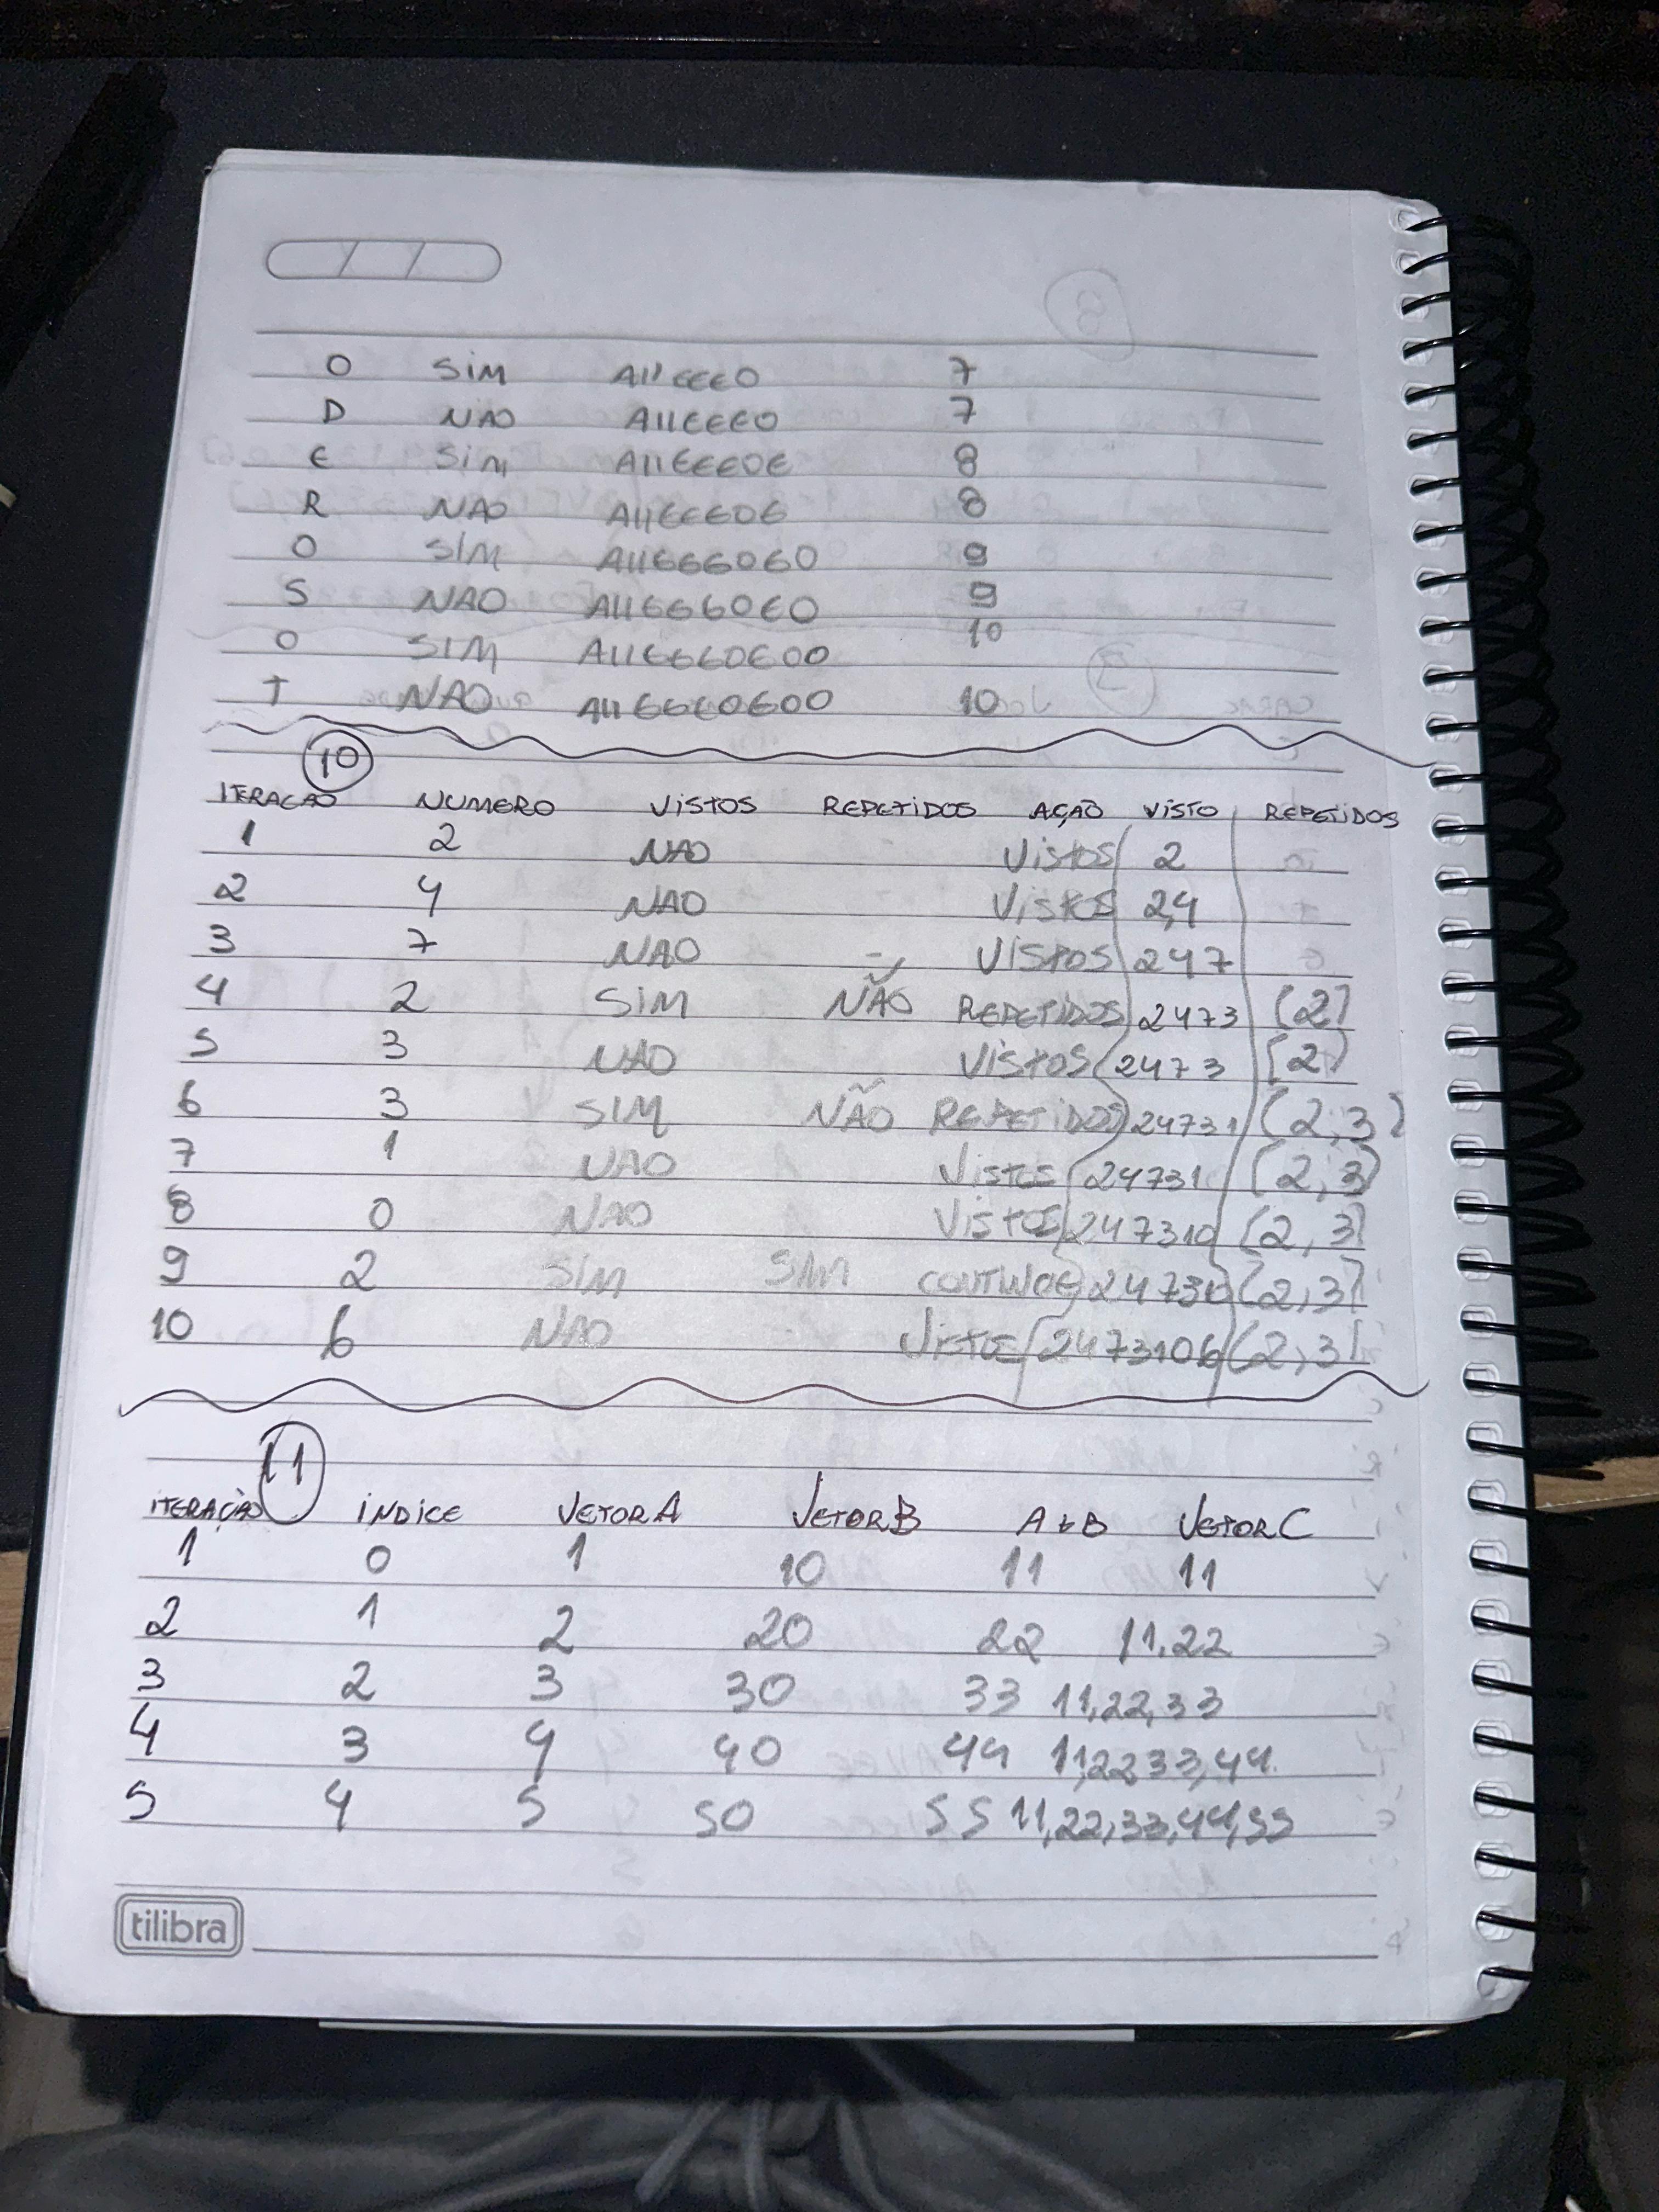 O SIM AIIEEEO 7
D NAO AIIEEEO 7
E SIM AIIEEEOE 8
R NAO AIIEEEOE 8
O SIM AIIEEEOEO 9
S NAO AIIEEEOEO 9
O SIM AIIEEEOEOO 10
T NAO AIIEEEOEOO 10
10
ITERACAO NUMERO VISTOS REPETIDOS AÇÃO VISTO REPETIDOS
1 2 NAO VISTOS 2
2 4 NAO VISTOS 2,4
3 7 NAO - VISTOS 247
4 2 SIM NÃO REPETIDOS 2473 [2]
5 3 NAO VISTOS 2473 [2]
6 3 SIM NÃO REPETIDOS 24731 [2,3]
7 1 NAO VISTOS 24731 [2,3]
8 0 NAO VISTOS 247310 [2,3]
9 2 SIM SIM CONTINUE [2,3]
10 6 NAO VISTOS 2473106 [2,3]
11
ITERAÇÃO INDICE VETOR A VETOR B A+B VETOR C
1 0 1 10 11 11
2 1 2 20 22 11,22
3 2 3 30 33 11,22,33
4 3 4 40 44 11,22 33,44.
5 4 5 50 55 11,22,33,44,55
tilibra